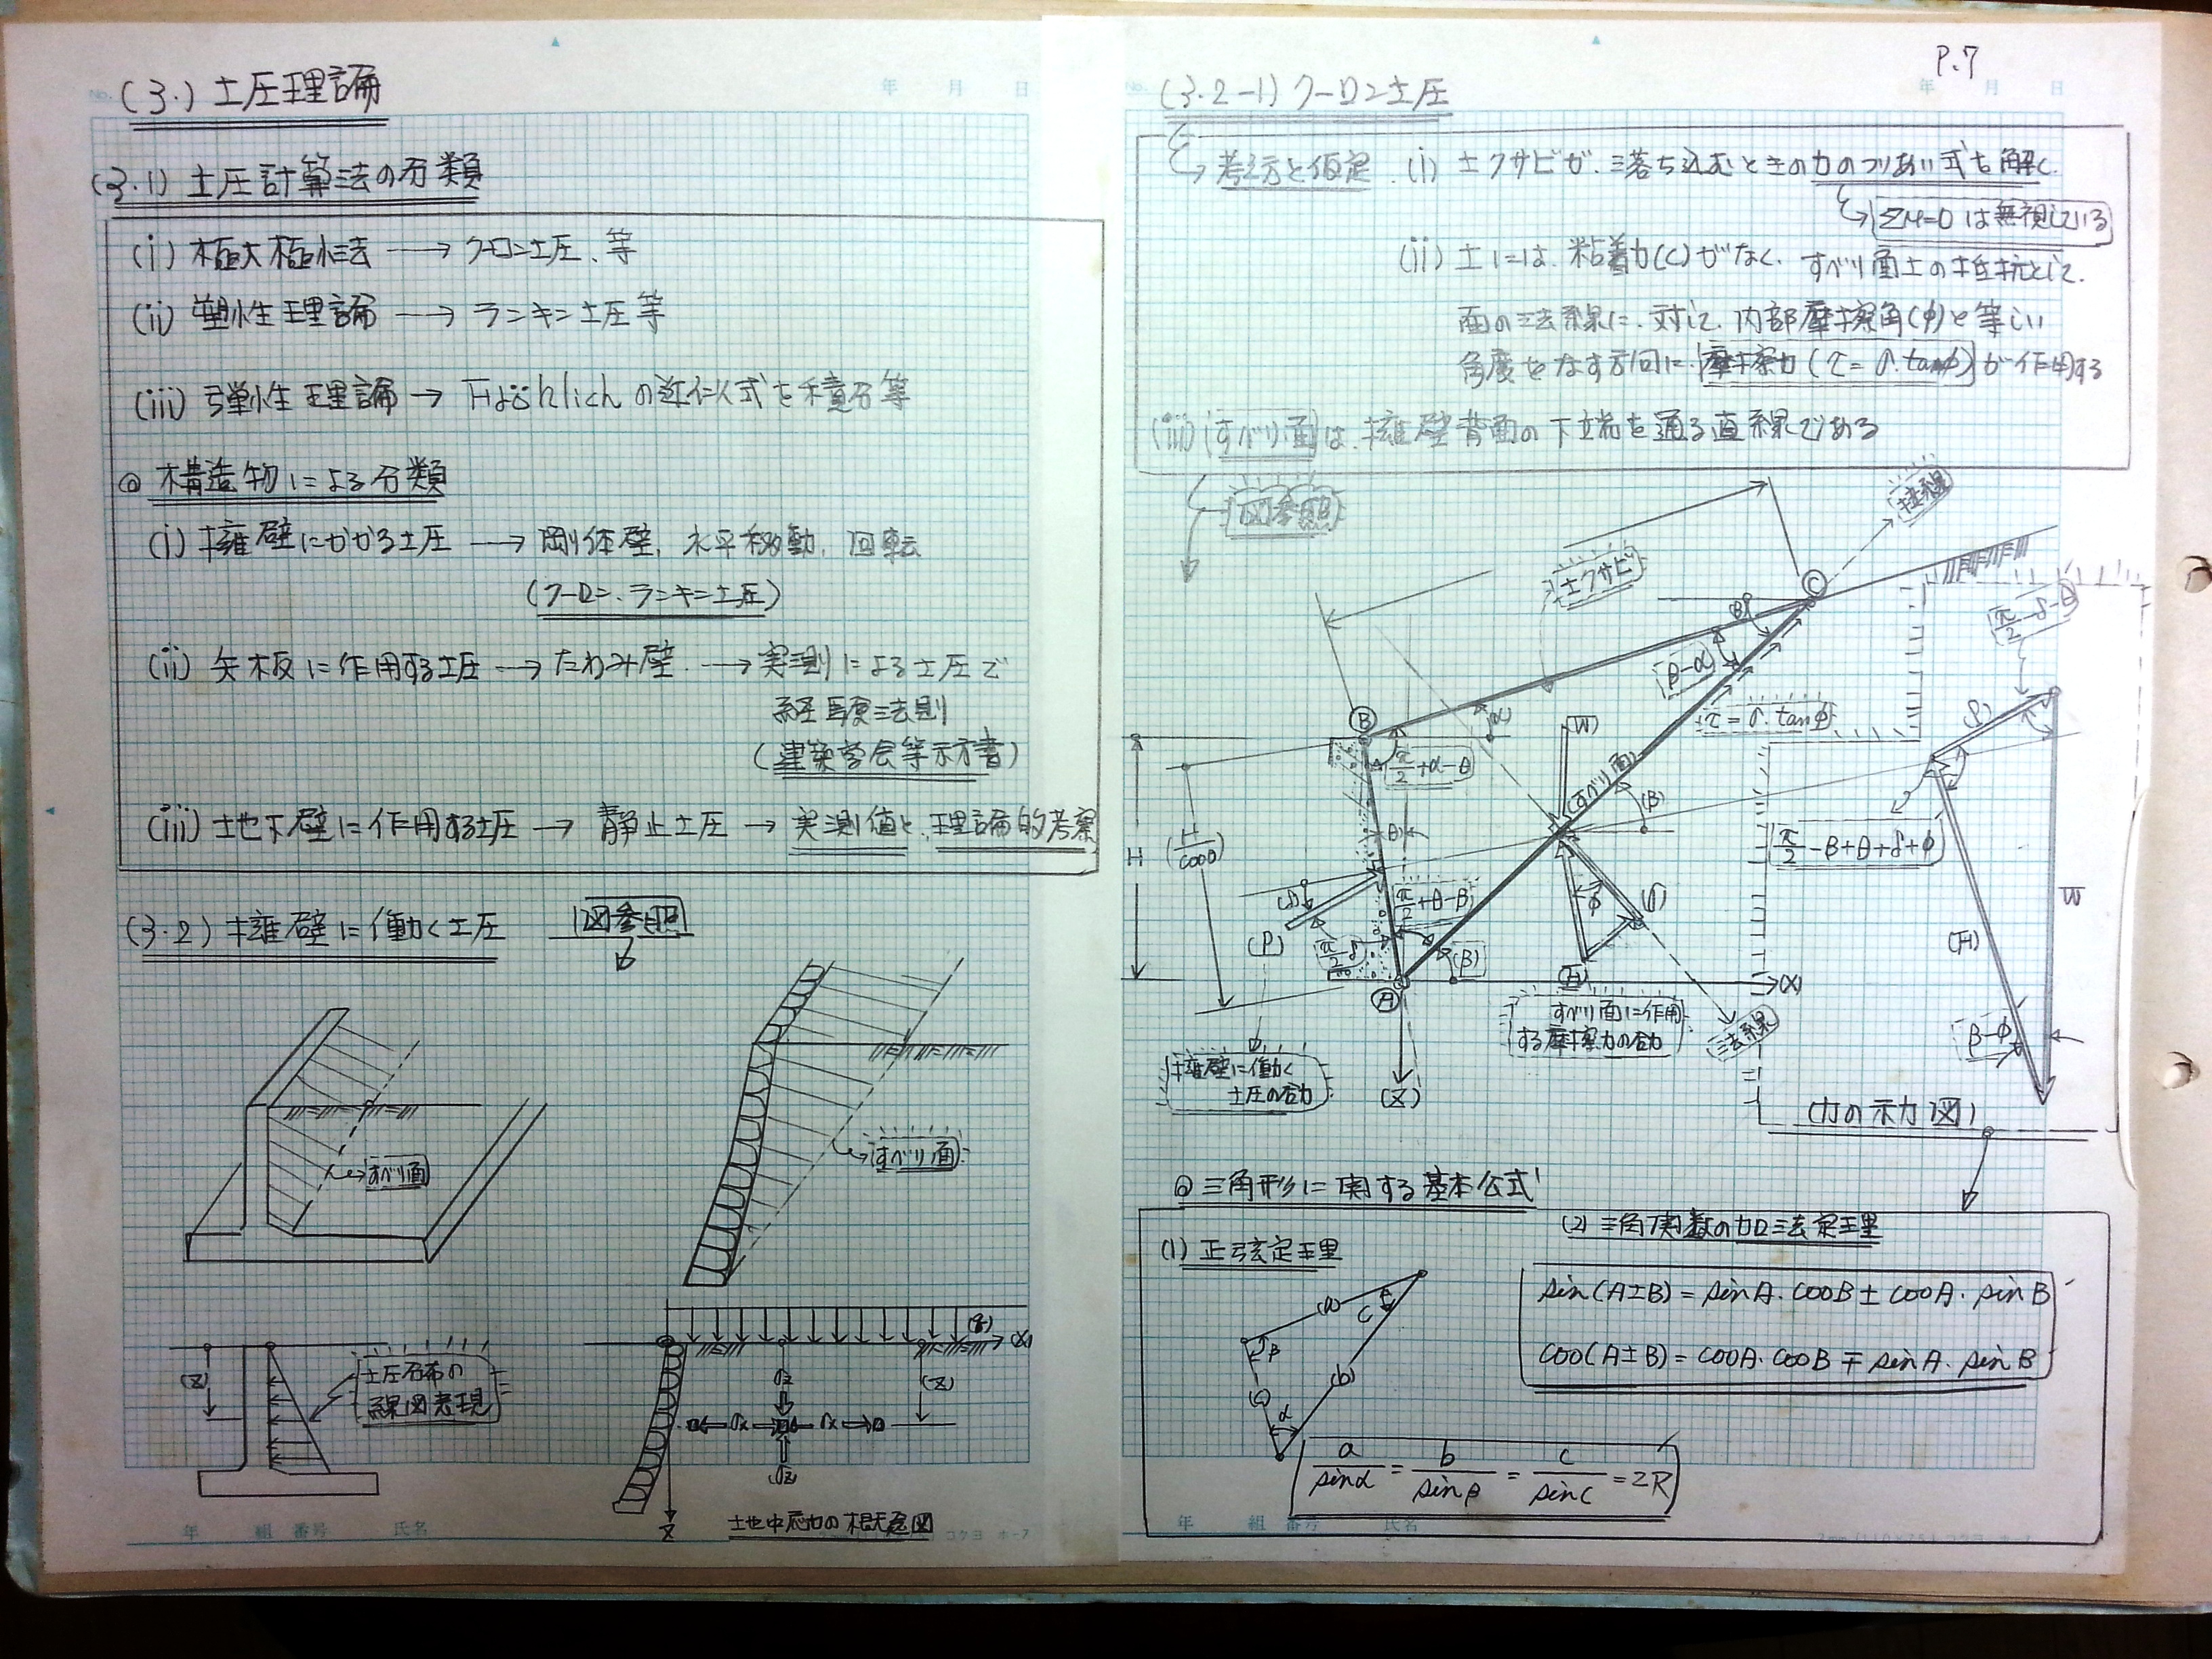 (3.) 土圧理論
(3.1) 土圧計算法の分類
(i) 極大極小法 → クーロン土圧、等
(ii) 塑性理論 → ランキン土圧等
(iii) 弾性理論 → の近似式を積分等
◎ 構造物による分類
(i) 擁壁にかかる土圧 → 剛体壁、水平移動、回転
(クーロン、ランキン土圧)
(ii) 矢板に作用する土圧 → たわみ壁 → 実測による土圧で
経験法則
(建築学会等示方書)
(iii) 地下壁に作用する土圧 → 静止土圧 → 実測値と、理論的考察
(3.2) 擁壁に働く土圧 図参照
すべり面
すべり面
土圧分布の
線図表現
(Z)
(q)
(X)
σz
(Z)
σx σx
σz
Z
地中応力の概念図
年 組 番号 氏名
P.7
年 月 日
(3.2-1) クーロン土圧
考え方と仮定 (i) 土クサビが、落ち込むときの力のつりあい式を解く
ΣM=0 は無視している
(ii) 土には、粘着力(C)がなく、すべり面上の抵抗として、
面の法線に、対して、内部摩擦角(φ)と等しい
角度をなす方向に摩擦力(τ=σ.tanφ)が作用する
(iii) すべり面は、擁壁背面の下端を通る直線である
図参照
土クサビ
C
β-α
τ=σ.tanφ
π/2-δ-θ
B
π/2+α-θ
(W)
(すべり面)
(β)
H
(H/cosθ)
π/2-β+θ+δ+φ
π/2+θ-β
(δ)
φ
(P)
π/2-δ
(β)
(F)
W
A
(X)
(Z)
β-φ
擁壁に働く
土圧の合力
すべり面に作用
する摩擦力の合力
法線
(力の示力図)
◎ 三角形に関する基本公式
(1) 正弦定理
(2) 三角関数の加法定理
(a)
C
β
(b)
(c)
α
sin(A±B)=sinA.cosB±cosA.sinB
cos(A±B)=cosA.cosB∓sinA.sinB
a/sinα = b/sinβ = c/sinC = 2R
年 組 番号 氏名